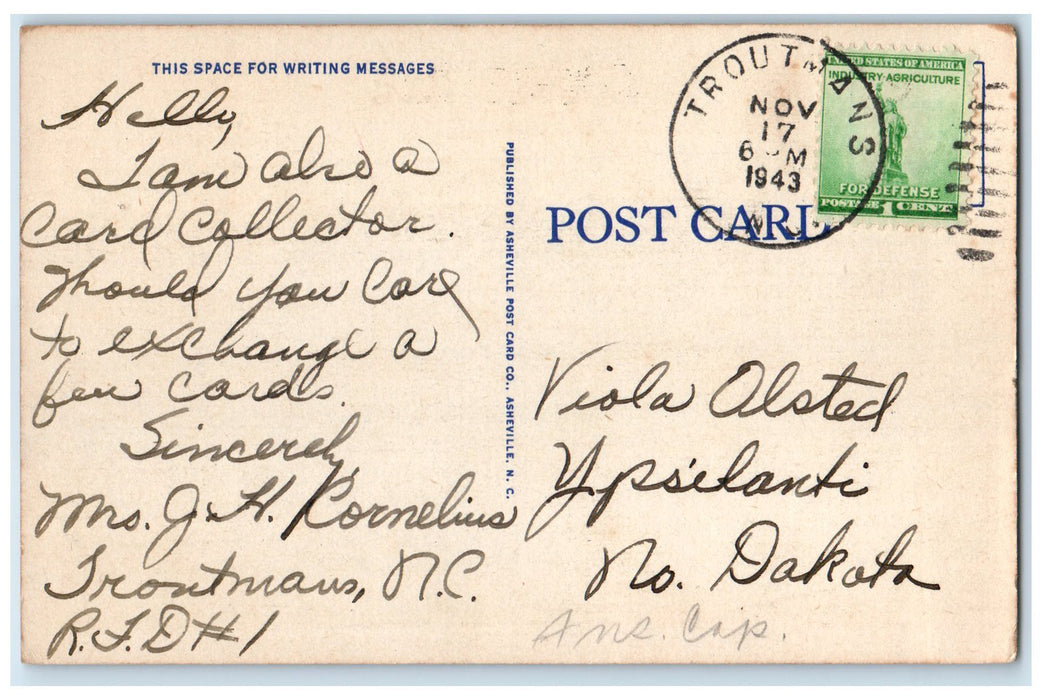 THIS SPACE FOR WRITING MESSAGES
Hello,
I am also a
Card Collector.
Should you Care
to exchange a
few cards.
Sincerely,
Mrs. J. H. Cornelius
Troutmans, N.C.
R.F.D #1
PUBLISHED BY ASHEVILLE POST CARD CO., ASHEVILLE, N. C.
TROUTMANS
NOV
17
6 M
1943
N.C.
UNITED STATES OF AMERICA
INDUSTRY AGRICULTURE
FOR DEFENSE
POSTAGE 1 CENT
POST CARD
Viola Olsted
Ypsilanti
No. Dakota
Ans. Cap.